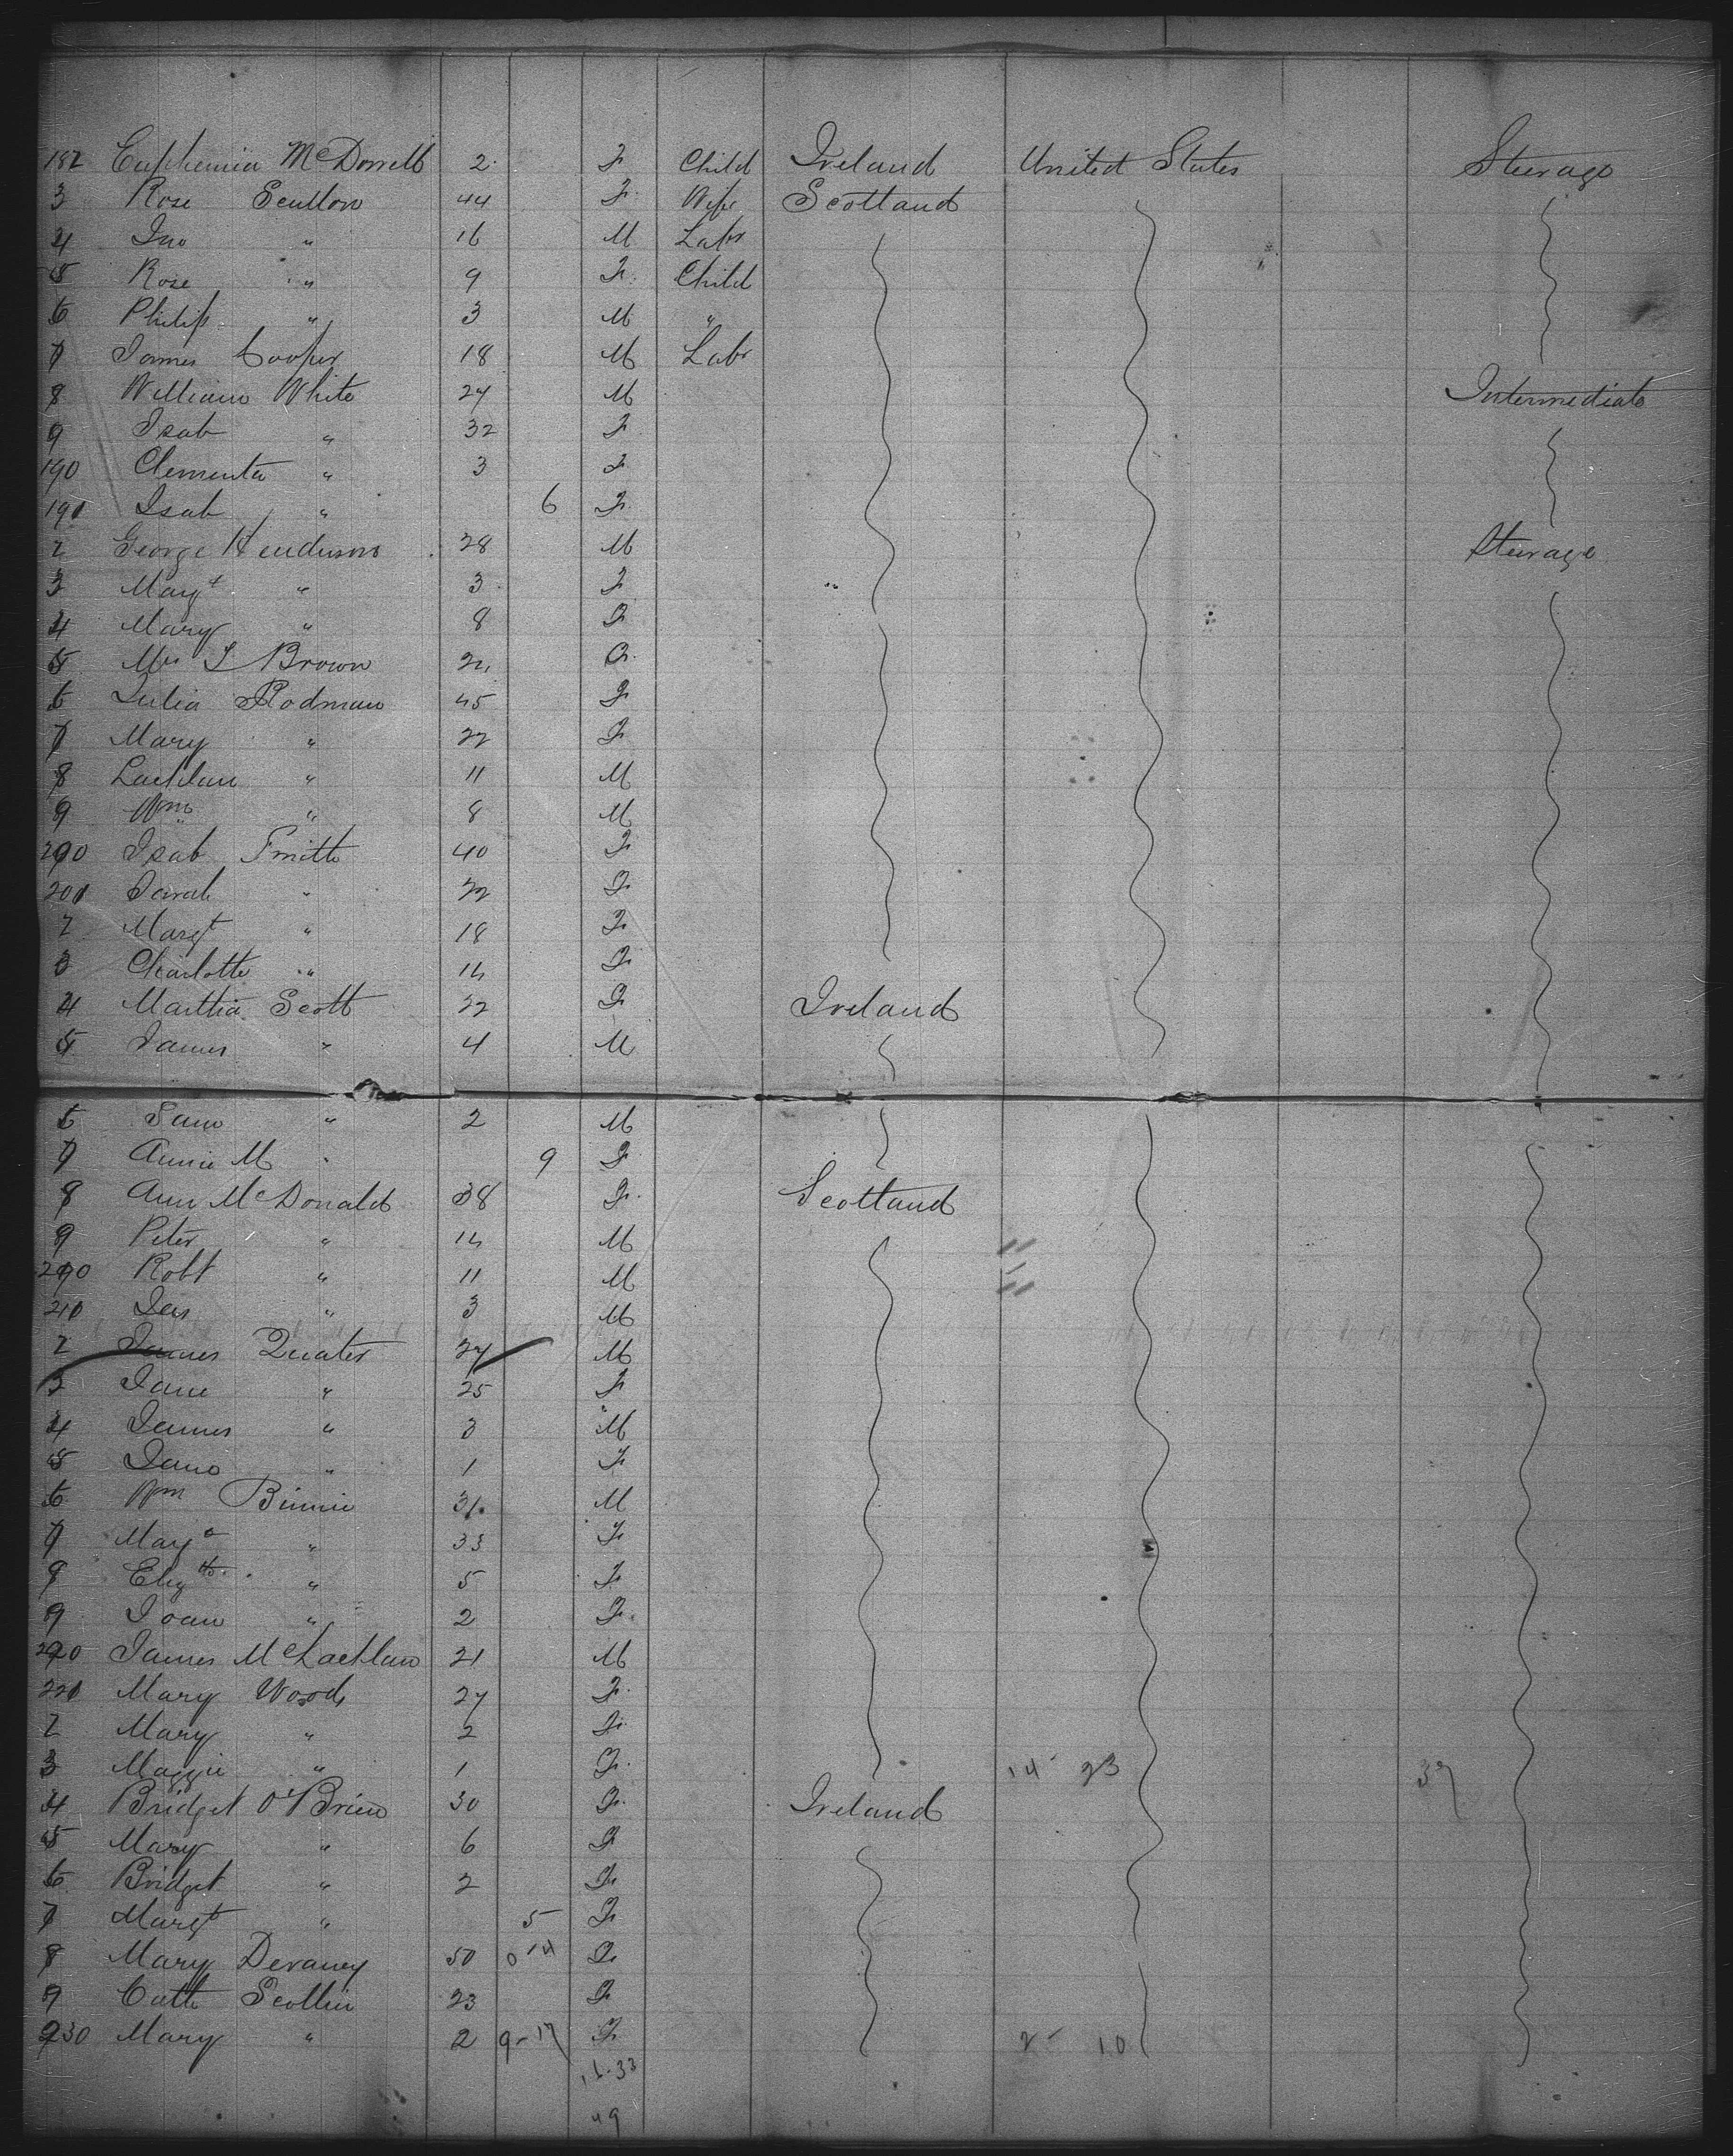 182 Euphemia McDonell 2 F Child Ireland United States Steerage
3 Rose Scullon 44 F Wife Scotland
4 Jno " 16 M Labr
5 Rose " 9 F Child
6 Philip " 3 M "
7 James Cooper 18 M Labr
8 William White 24 M Intermediate
9 Isab " 32 F
190 Clementa " 3 F
191 Isab " 6 F
2 George Henderson 28 M Steerage
3 Magt " 3 F
4 Mary " 8 F
5 Mrs Brown F
6 Julia Rodman 45 F
7 Mary " 22 F
8 Lachlan " 11 M
9 Wm " 8 M
200 Isab Smith 40 F
201 Sarah " 22 F
2 Margt " 18 F
3 Charlotte " 14 F
4 Martha Scott 22 F Ireland
5 James " 4 M
6 Sam " 2 M
7 Annie M " 9 F
8 Ann McDonald 38 F Scotland
9 Peter " 14 M
210 Robt " 11 M
211 Jas " 3 M
2 James Quater 27 M
3 Jane " 25 F
4 James " 3 M
5 Jane " 1 F
6 Wm Binnie 31 M
7 Magt " 33 F
8 Elizth " 5 F
9 Joan " 2 F
220 James McLachlan 21 M
221 Mary Woods 27 F
2 Mary " 2 F
3 Maggie " 1 F 14 23 37
4 Bridget O'Brien 30 F Ireland
5 Mary " 6 F
6 Bridget " 2 F
7 Margt " 5 F
8 Mary Devaney 50 0 14 F
9 Cath Scollin 23 F
230 Mary " 2 9-17 F 2 - 10
16-33
49